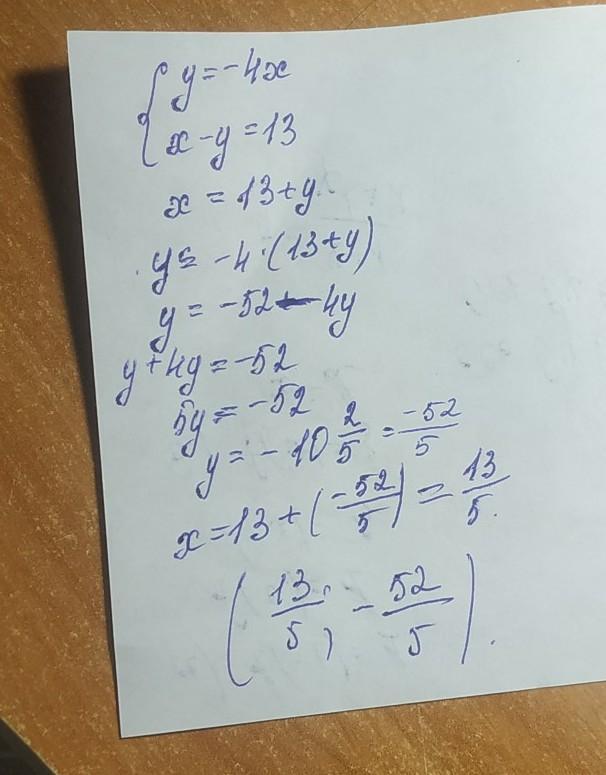 { y = -4x
x - y = 13
x = 13 + y
y = -4·(13+y)
y = -52 - 4y
y + 4y = -52
5y = -52
y = -10 2/5 = -52/5
x = 13 + (-52/5) = 13/5.
(13/5; -52/5).